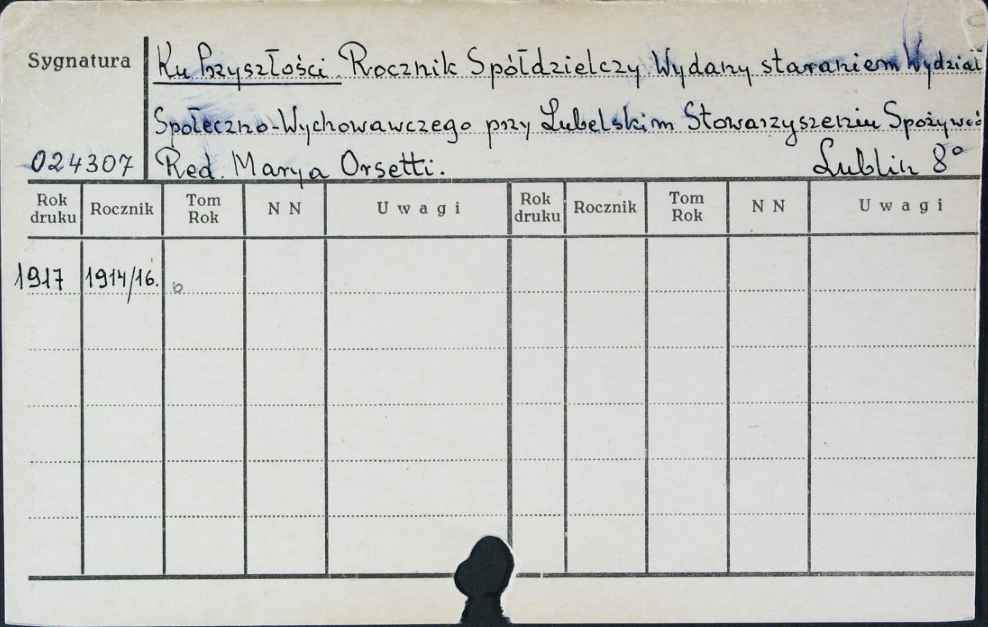 Sygnatura Ku Przyszłości. Rocznik Spółdzielczy. Wydany staraniem Wydział
Społeczno-Wychowawczego przy Lubelskim Stowarzyszeniu Spożywcó
024307 Red. Marya Orsetti. Lublin 8°
Rok druku Rocznik Tom Rok N N Uwagi Rok druku Rocznik Tom Rok N N Uwagi
1917 1914/16.